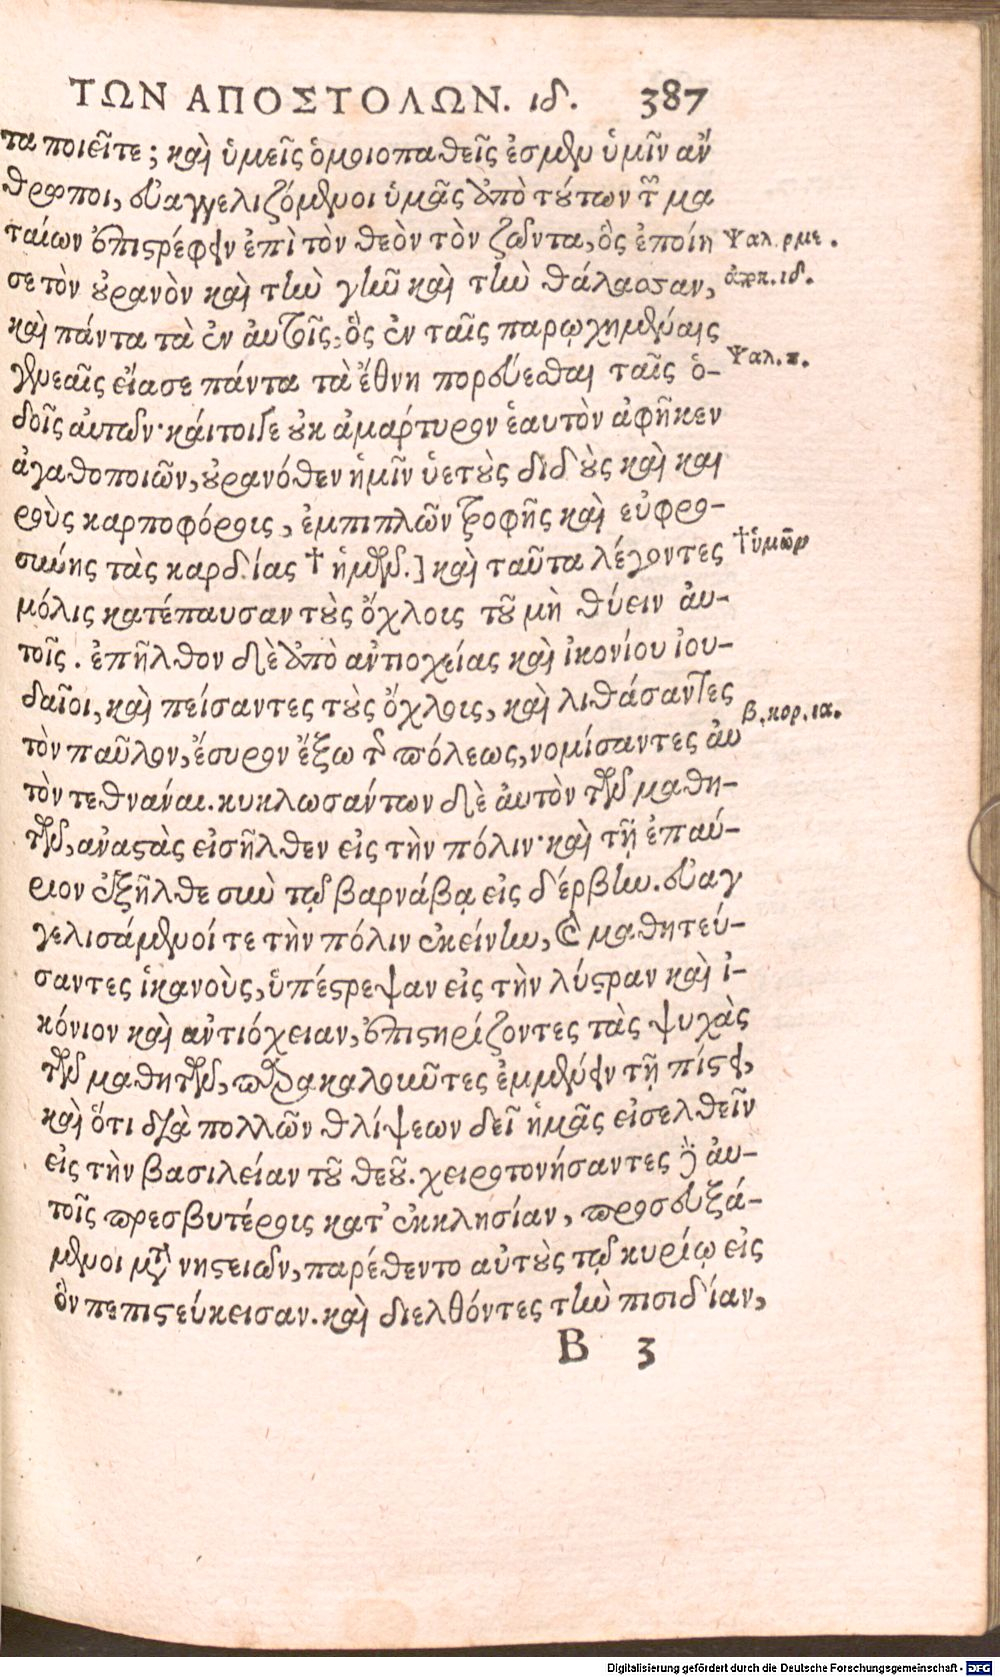 ΤΩΝ ΑΠΟΣΤΟΛΩΝ. ιδ. 387
τα ποιεῖτε; καὶ ὑμεῖς ὁμοιοπαθεῖς ἐσμὲν ὑμῖν ἄν
θρωποι, εὐαγγελιζόμενοι ὑμᾶς ἀπὸ τούτων τῶν μα
ταίων ἐπιστρέφειν ἐπὶ τὸν θεὸν τὸν ζῶντα, ὃς ἐποίη
Ψαλ. ρμε.
σε τὸν οὐρανὸν καὶ τὴν γῆν καὶ τὴν θάλασσαν,
ἀποκ. ιδ.
καὶ πάντα τὰ ἐν ἀυτοῖς, ὃς ἐν ταῖς παρῳχημέναις
Ψαλ. π.
γενεαῖς εἴασε πάντα τὰ ἔθνη πορεύεσθαι ταῖς ὁ-
δοῖς ἀυτῶν· κάιτοιγε οὐκ ἀμάρτυρον ἑαυτὸν ἀφῆκεν
ἀγαθοποιῶν, οὐρανόθεν ἡμῖν ὑετοὺς διδοὺς καὶ και
ροὺς καρποφόροις, ἐμπιπλῶν τροφῆς καὶ εὐφρο-
σύνης τὰς καρδίας † ἡμῶν.] καὶ ταῦτα λέγοντες
† ὑμῶν
μόλις κατέπαυσαν τοὺς ὄχλοις τοῦ μὴ θύειν ἀυ-
τοῖς. ἐπῆλθον δὲ ἀπὸ ἀντιοχείας καὶ ἰκονίου ἰου-
δαῖοι, καὶ πείσαντες τοὺς ὄχλοις, καὶ λιθάσαντες
β. κορ. ια.
τὸν παῦλον, ἔσυρον ἔξω τῆς πόλεως, νομίσαντες ἀυ
τὸν τεθνάναι. κυκλωσάντων δὲ ἀυτὸν τῶν μαθη-
τῶν, ἀναστὰς εἰσῆλθεν εἰς τὴν πόλιν· καὶ τῇ ἐπαύ-
ριον ἐξῆλθε σὺν τῷ βαρνάβᾳ εἰς δέρβην. εὐαγ
γελισάμενοί τε τὴν πόλιν ἐκείνην, καὶ μαθητεύ-
σαντες ἱκανοὺς, ὑπέστρεψαν εἰς τὴν λύστραν καὶ ἰ-
κόνιον καὶ ἀντιόχειαν, ἐπιστηρίζοντες τὰς ψυχὰς
τῶν μαθητῶν, παρακαλοῦντες ἐμμένειν τῇ πίστει,
καὶ ὅτι διὰ πολλῶν θλίψεων δεῖ ἡμᾶς εἰσελθεῖν
εἰς τὴν βασιλείαν τοῦ θεοῦ. χειροτονήσαντες δὲ ἀυ-
τοῖς πρεσβυτέροις κατ' ἐκκλησίαν, προσευξά-
μενοι μετὰ νηστειῶν, παρέθεντο αὐτοὺς τῷ κυρίῳ εἰς
ὃν πεπιστεύκεισαν. καὶ διελθόντες τὴν πισιδίαν,
B 3
Digitalisierung gefördert durch die Deutsche Forschungsgemeinschaft - DFG